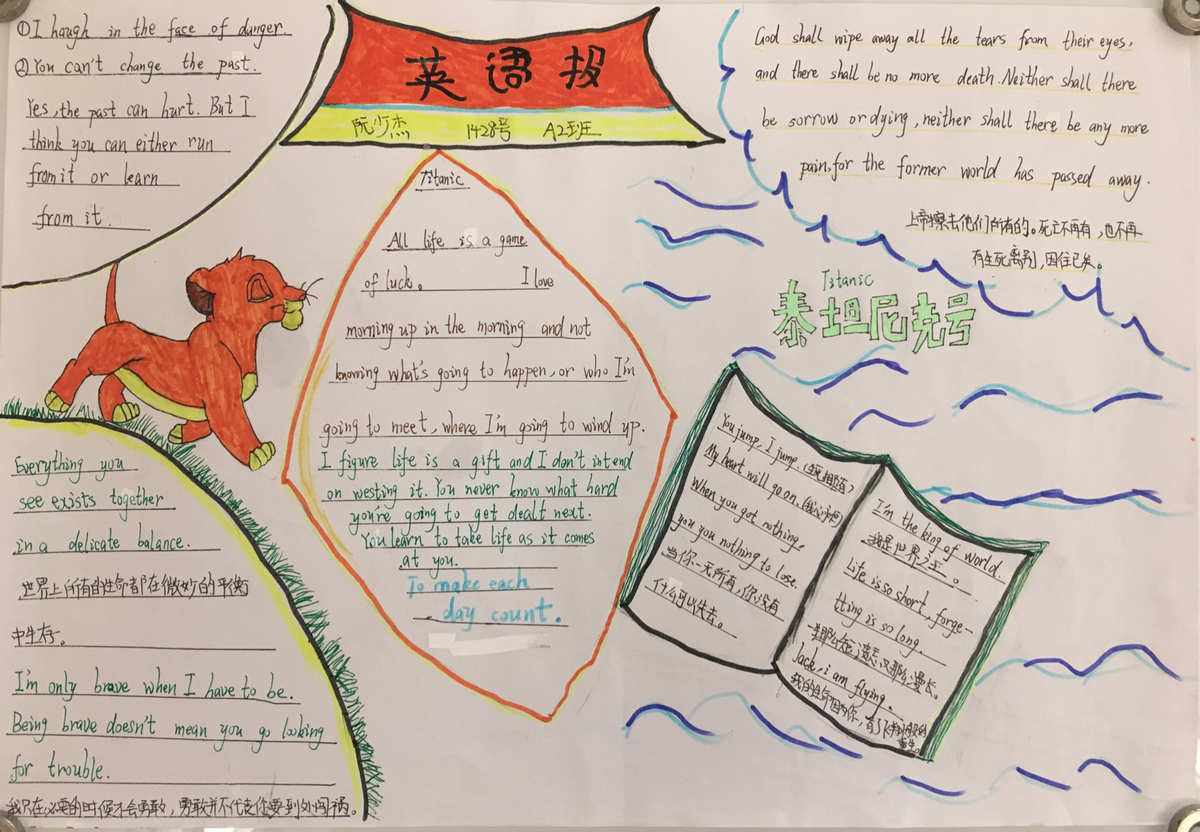 ①I haugh in the face of danger.
②You can't change the past.
Yes, the past can hurt. But I
think you can either run
from it or learn
from it.
英语报
阮少杰 1428号 A2班
Titanic
All life is a game
of luck. I love
morning up in the morning and not
knowing what's going to happen, or who I'm
going to meet, where I'm going to wind up.
I figure life is a gift and I don't intend
on westing it. You never know what hard
you're going to get dealt next.
You learn to take life as it comes
at you.
To make each
day count.
God shall wipe away all the tears from their eyes,
and there shall be no more death. Neither shall there
be sorrow or dying, neither shall there be any more
pain, for the former world has passed away.
上帝擦去他们所有的。死亡不再有，也不再
有生死离别，因往已矣。
Titanic
泰坦尼克号
Everything you
see exists together
in a delicate balance.
世界上所有的生命都在微妙的平衡
中生存。
I'm only brave when I have to be.
Being brave doesn't mean you go looking
for trouble.
我只在必要的时候才会勇敢，勇敢并不代表你要到处闯祸。
You jump, I jump.
My heart will go on.
When you got nothing,
you you nothing to lose.
当你一无所有，你没有
什么可以失去。
I'm the king of world.
我是世界之王。
Life is so short, forge-
tting is so long.
那么短，遗忘又那么漫长。
Jack, i am flying.
我的生命因为你，有了